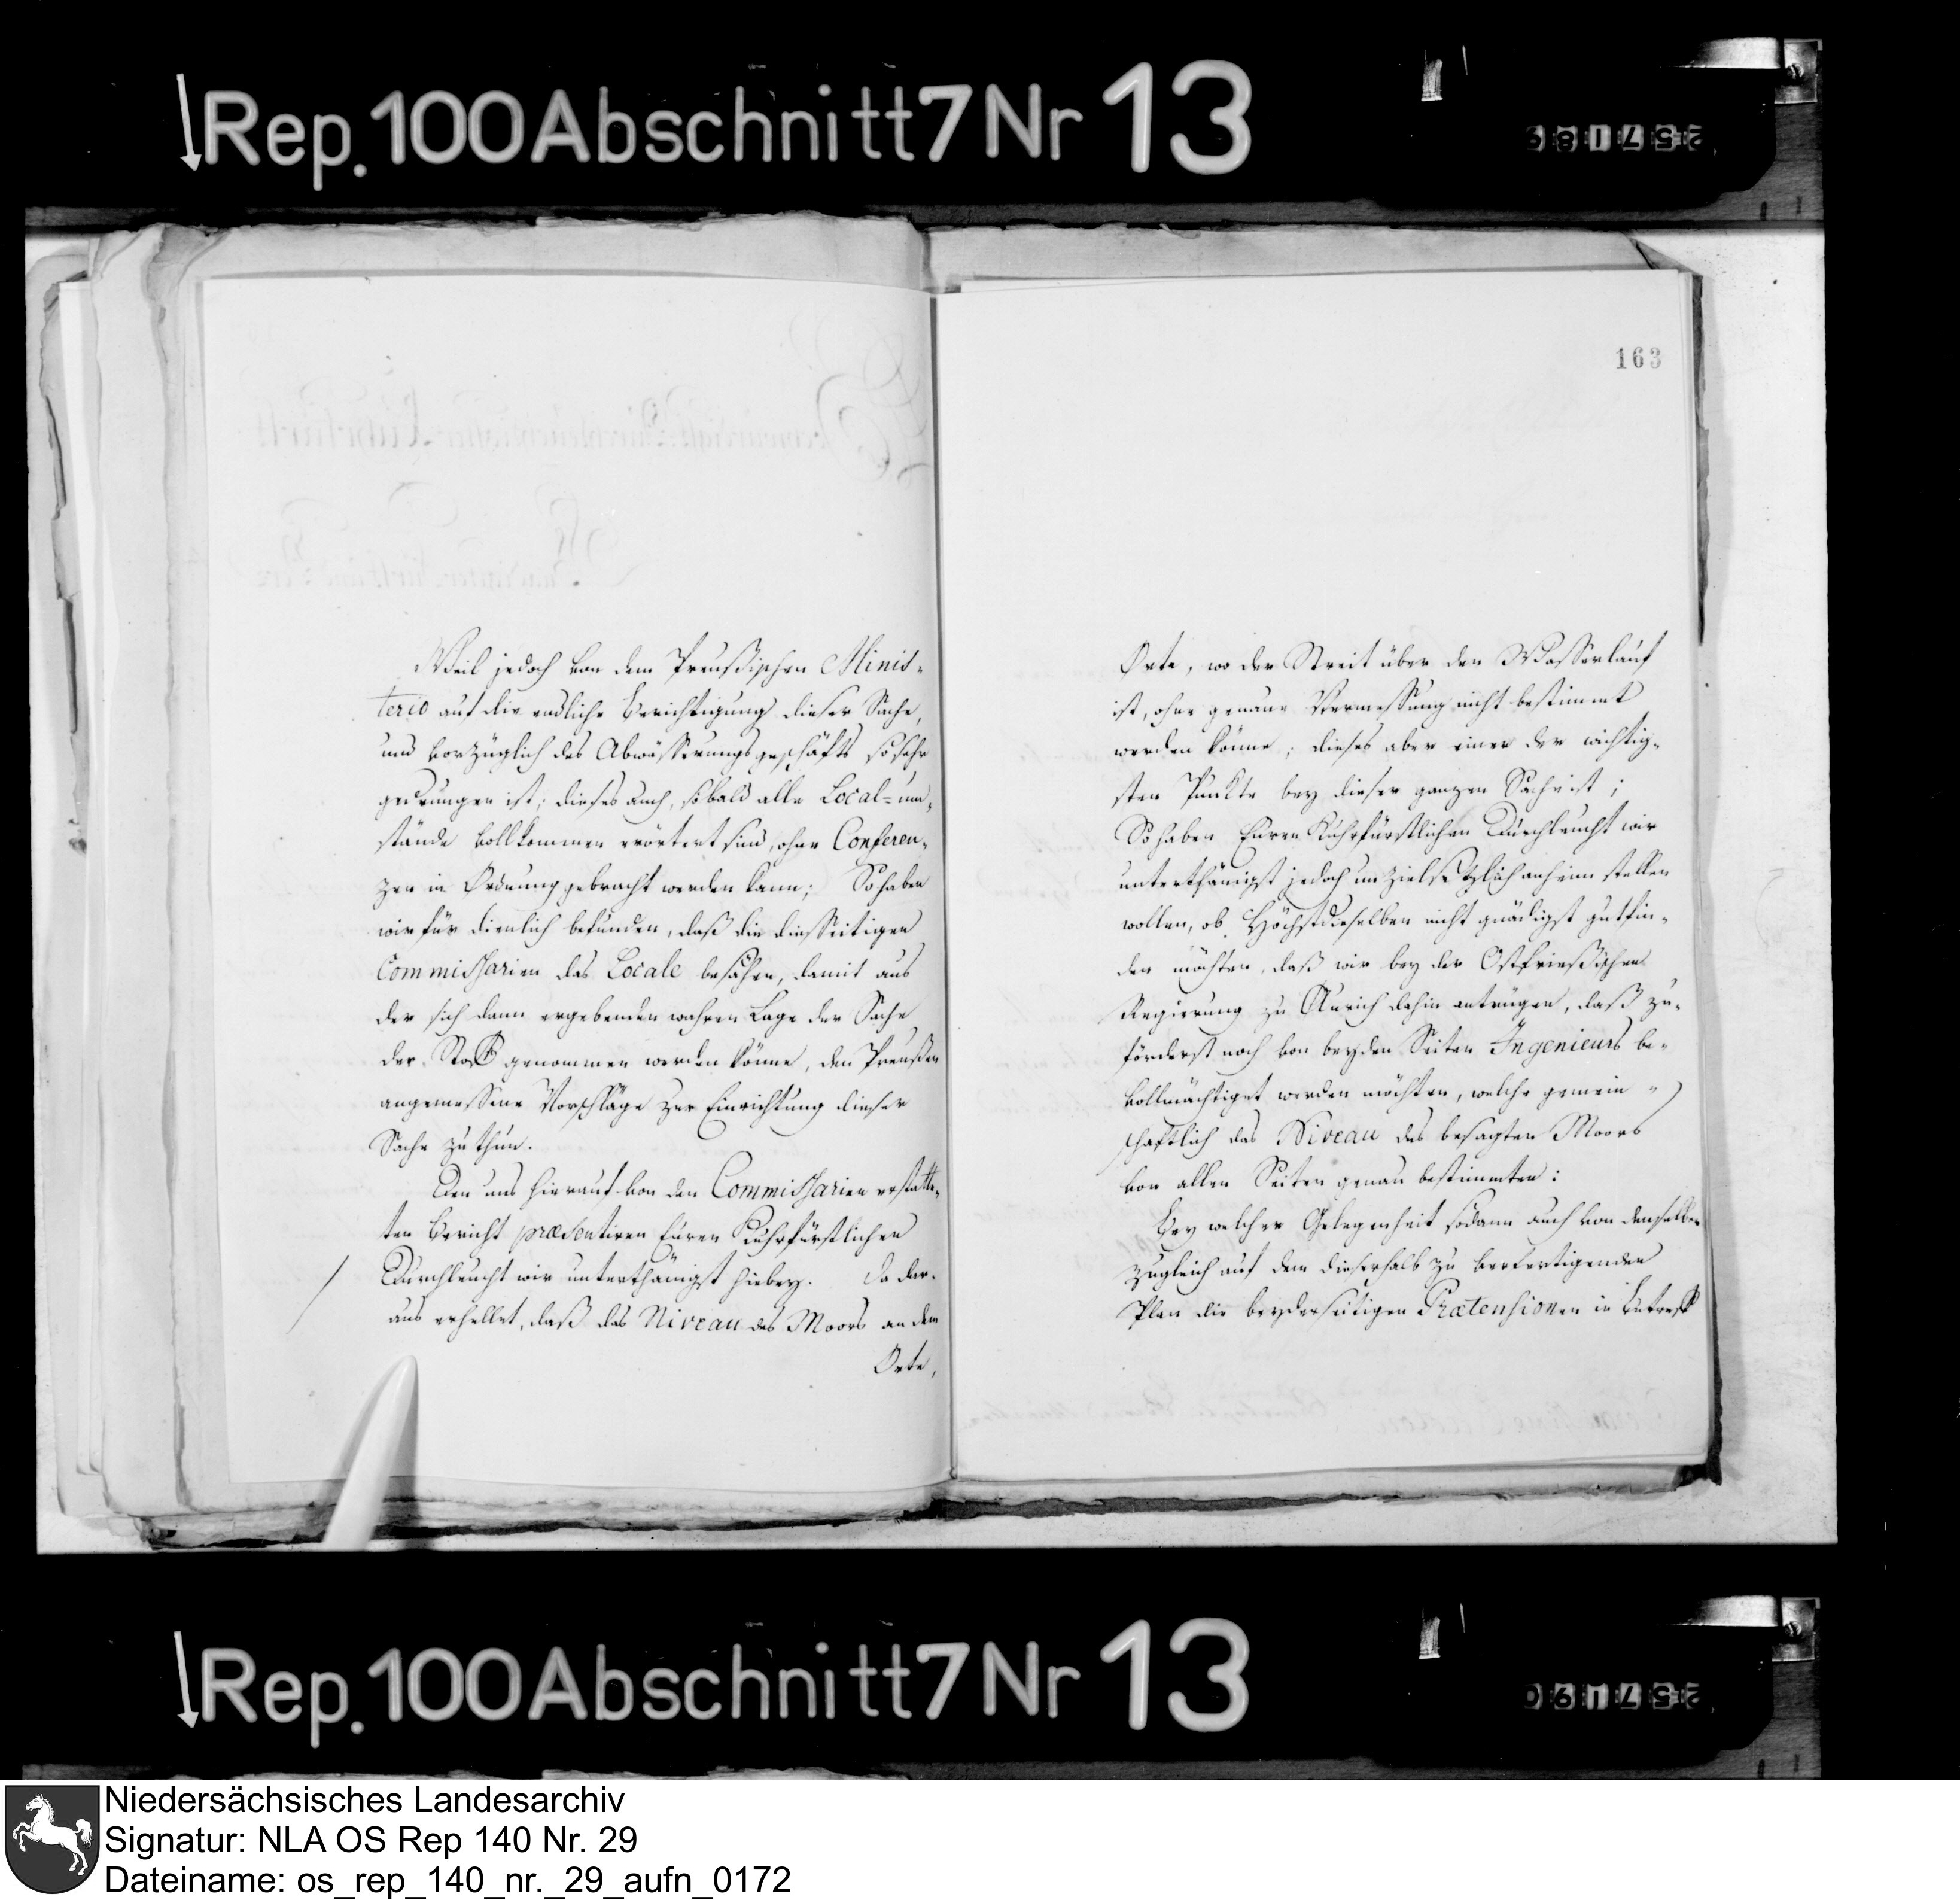 Rep. 100 Abschnitt 7 Nr 13
257189
Weil jedoch von dem Preußischen Minis-
terio auf die endliche Berichtigung dieser Sache,
und vorzüglich des Abwässerungs geschäfts so sehr
gedrungen ist; dieses auch, sobald alle Local-um-
stände vollkommen erörtert sind, ohne Conferen-
zen in Ordnung gebracht werden kann; So haben
wir für dienlich befunden, daß die diesseitigen
Commissarien das Locale besähen, damit aus
der sich dann ergebenden wahren Lage der Sache
der Stoff genommen werden könne, den Preußen
angemessene Vorschläge zur Einrichtung dieser
Sache zu thun.
Den uns hierauf von den Commissarien erstatte-
ten Bericht præsentiren Euren Kuhrfürstlichen
Durchleucht wir unterthänigst hiebey. Da dar-
aus erhellet, daß das Niveau des Moors an dem
Orte,
163
Orte, wo der Streit über den Wasserlauf
ist, ohne genaue Vermessung nicht bestimmt
werden könne; dieses aber einer der wichtig-
sten Punkte bey dieser ganzen Sache ist;
So haben Euren Kuhrfürstlichen Durchleucht wir
unterthänigst jedoch unzielsetzlich anheim stellen
wollen, ob Höchstdieselben nicht gnädigst gutfin-
den möchten, daß wir bey der Ostfrießischen
Regierung zu Aurich dahin antrügen, daß zu-
förderst noch von beyden Seiten Ingenieurs be-
vollmächtiget werden möchten, welche gemein-
schaftlich das Niveau des besagten Moors
von allen Seiten genau bestimmten:
Bey welcher Gelegenheit sodann auch von denselben
zugleich auf dem dieserhalb zu verfertigenden
Plan die beyderseitigen Prætensionen in Betreff
Rep. 100 Abschnitt 7 Nr 13
257190
Niedersächsisches Landesarchiv
Signatur: NLA OS Rep 140 Nr. 29
Dateiname: os_rep_140_nr._29_aufn_0172